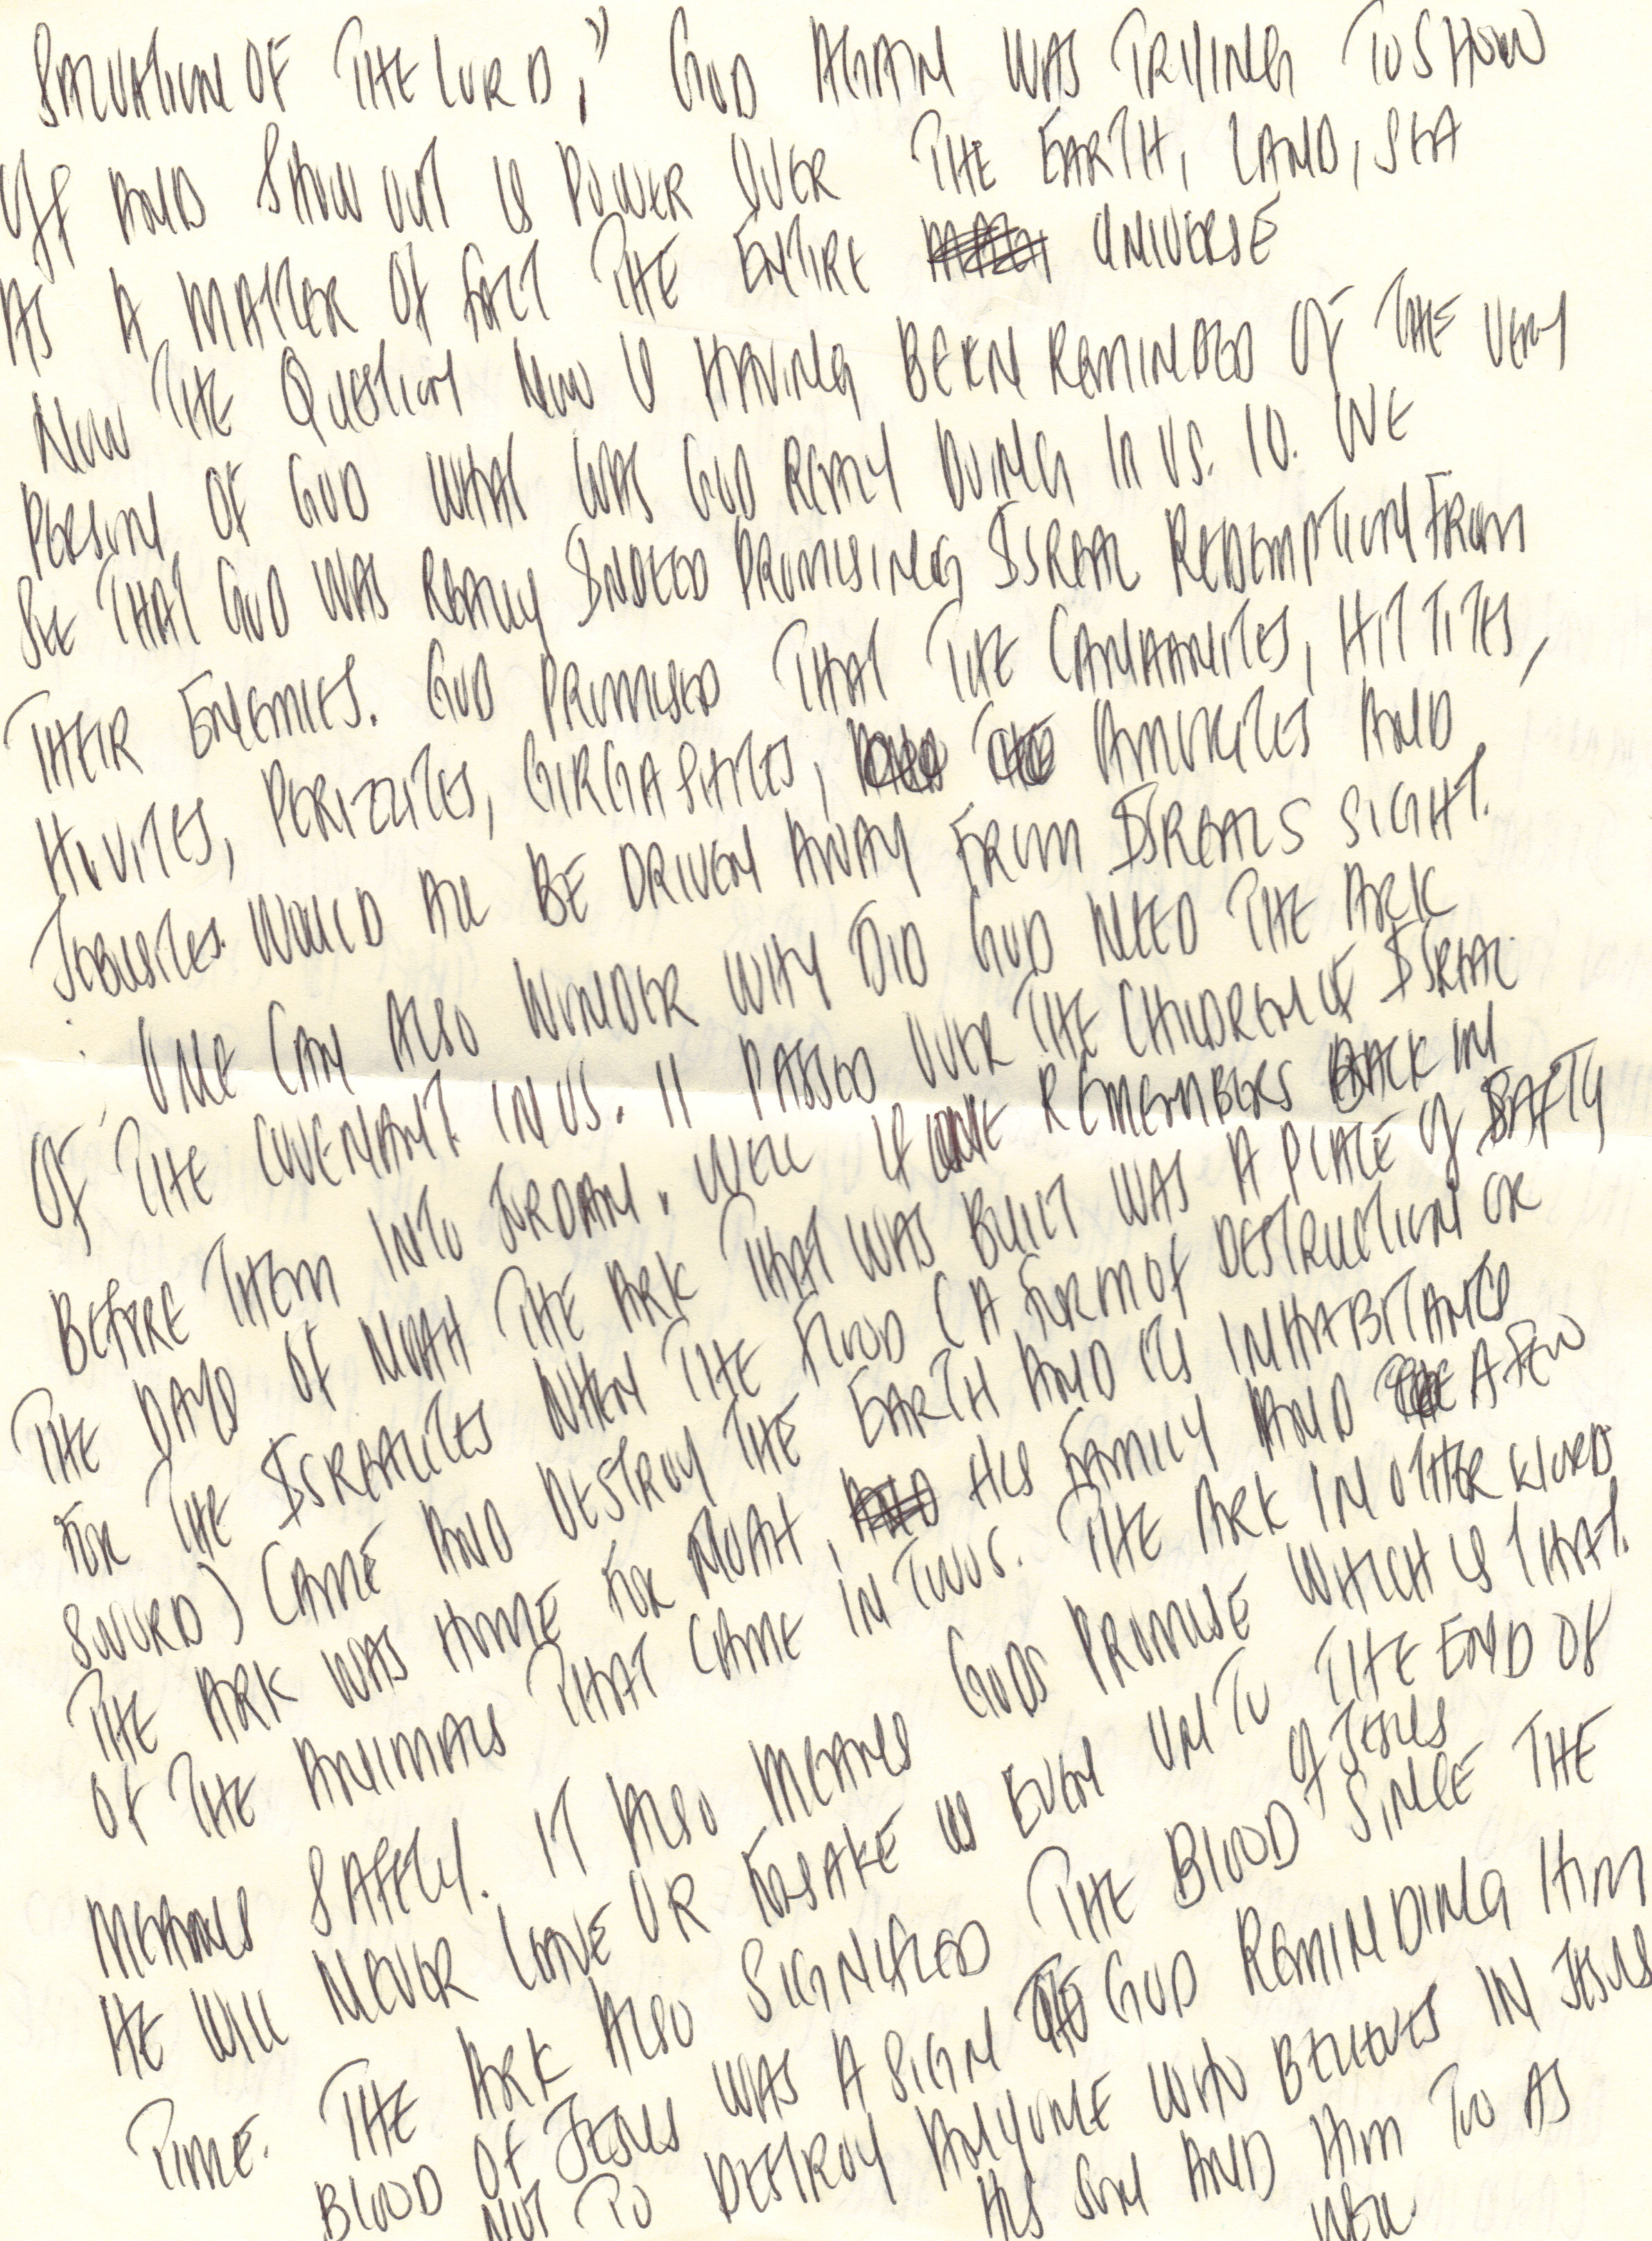 SALVATION OF THE LORD," GOD AGAIN WAS TRYING TO SHOW
OFF AND SHOW OUT IS POWER OVER THE EARTH, LAND, SEA
AS A MATTER OF FACT THE ENTIRE UNIVERSE
NOW THE QUESTION NOW IS HAVING BEEN REMINDED OF THE VERY
PERSON OF GOD WHAT WAS GOD REALLY DOING IN VS. 10. WE
SEE THAT GOD WAS REALLY INDEED PROMISING ISREAL REDEMPTION FROM
THEIR ENEMIES. GOD PROMISED THAT THE CANAANITES, HITTITES,
HIVITES, PERIZZITES, GIRGASHITES, AMORITES AND
JEBUSITES WOULD ALL BE DRIVEN AWAY FROM ISREALS SIGHT.
ONE CAN ALSO WONDER WHY DID GOD NEED THE ARK
OF THE COVENANT IN VS. 11 PASSED OVER THE CHILDREN OF ISREAL
BEFORE THEM INTO JORDAN. WELL IF ONE REMEMBERS BACK IN
THE DAYS OF NOAH THE ARK THAT WAS BUILT WAS A PLACE OF SAFTY
FOR THE ISREALITES WHEN THE FLOOD (A FORM OF DESTRUCTION OR
SWORD) CAME AND DESTROY THE EARTH AND ITS INHABITANTS
THE ARK WAS HOME FOR NOAH, HIS FAMILY AND A FEW
OF THE ANIMALS THAT CAME IN TWOS. THE ARK IN OTHER WORDS
MEANS SAFETY. IT ALSO MEANS GODS PROMISE WHICH IS THAT
HE WILL NEVER LEAVE OR FORSAKE US EVEN UNTO THE END OF
TIME. THE ARK ALSO SIGNIFIED THE BLOOD OF JESUS SINCE THE
BLOOD OF JESUS WAS A SIGN TO GOD REMINDING HIM
NOT TO DESTROY ANYONE WHO BELIEVES IN JESUS
HIS SON AND HIM TOO AS
WELL.